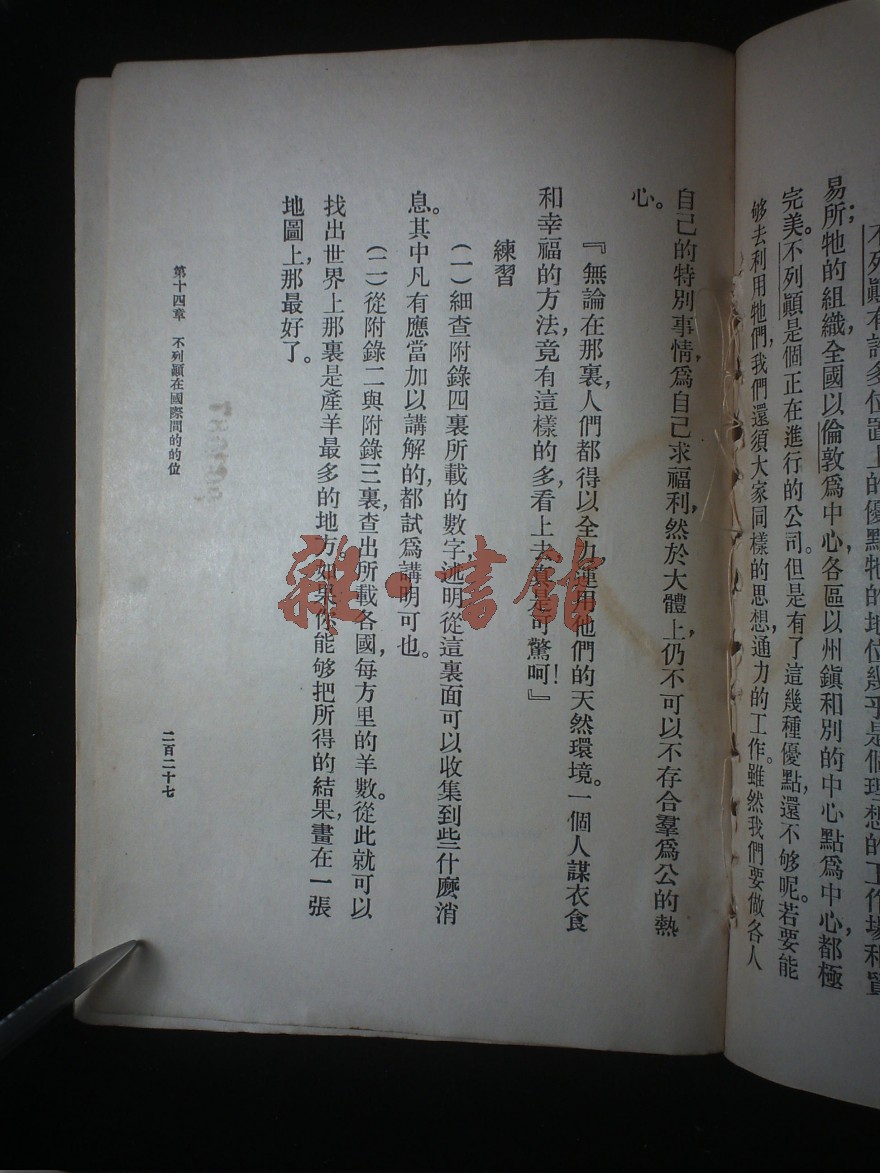 不列顚有許多位置上的優點牠的地位幾乎是個理想的工作場和貿
易所;牠的組織,全國以倫敦爲中心,各區以州鎭和別的中心點爲中心,都極
完美。不列顚是個正在進行的公司。但是有了這幾種優點,還不够呢。若要能
够去利用牠們,我們還須大家同樣的思想,通力的工作。雖然我們要做各人
自己的特別事情,爲自己求福利,然於大體上,仍不可以不存合羣爲公的熱
心。
『無論在那裏,人們都得以全力運用他們的天然環境。一個人謀衣食
和幸福的方法,竟有這樣的多,看上去眞是可驚呵!』
練習
(一)細查附錄四裏所載的數字,述明從這裏面可以收集到些什麼消
息。其中凡有應當加以講解的,都試爲講明可也。
(二)從附錄二與附錄三裏,查出所載各國,每方里的羊數。從此就可以
找出世界上那裏是產羊最多的地方。如果你能够把所得的結果,畫在一張
地圖上,那最好了。
第十四章 不列顚在國際間的的位
二百二十七
雜·書館